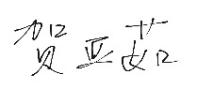 贺亚茹